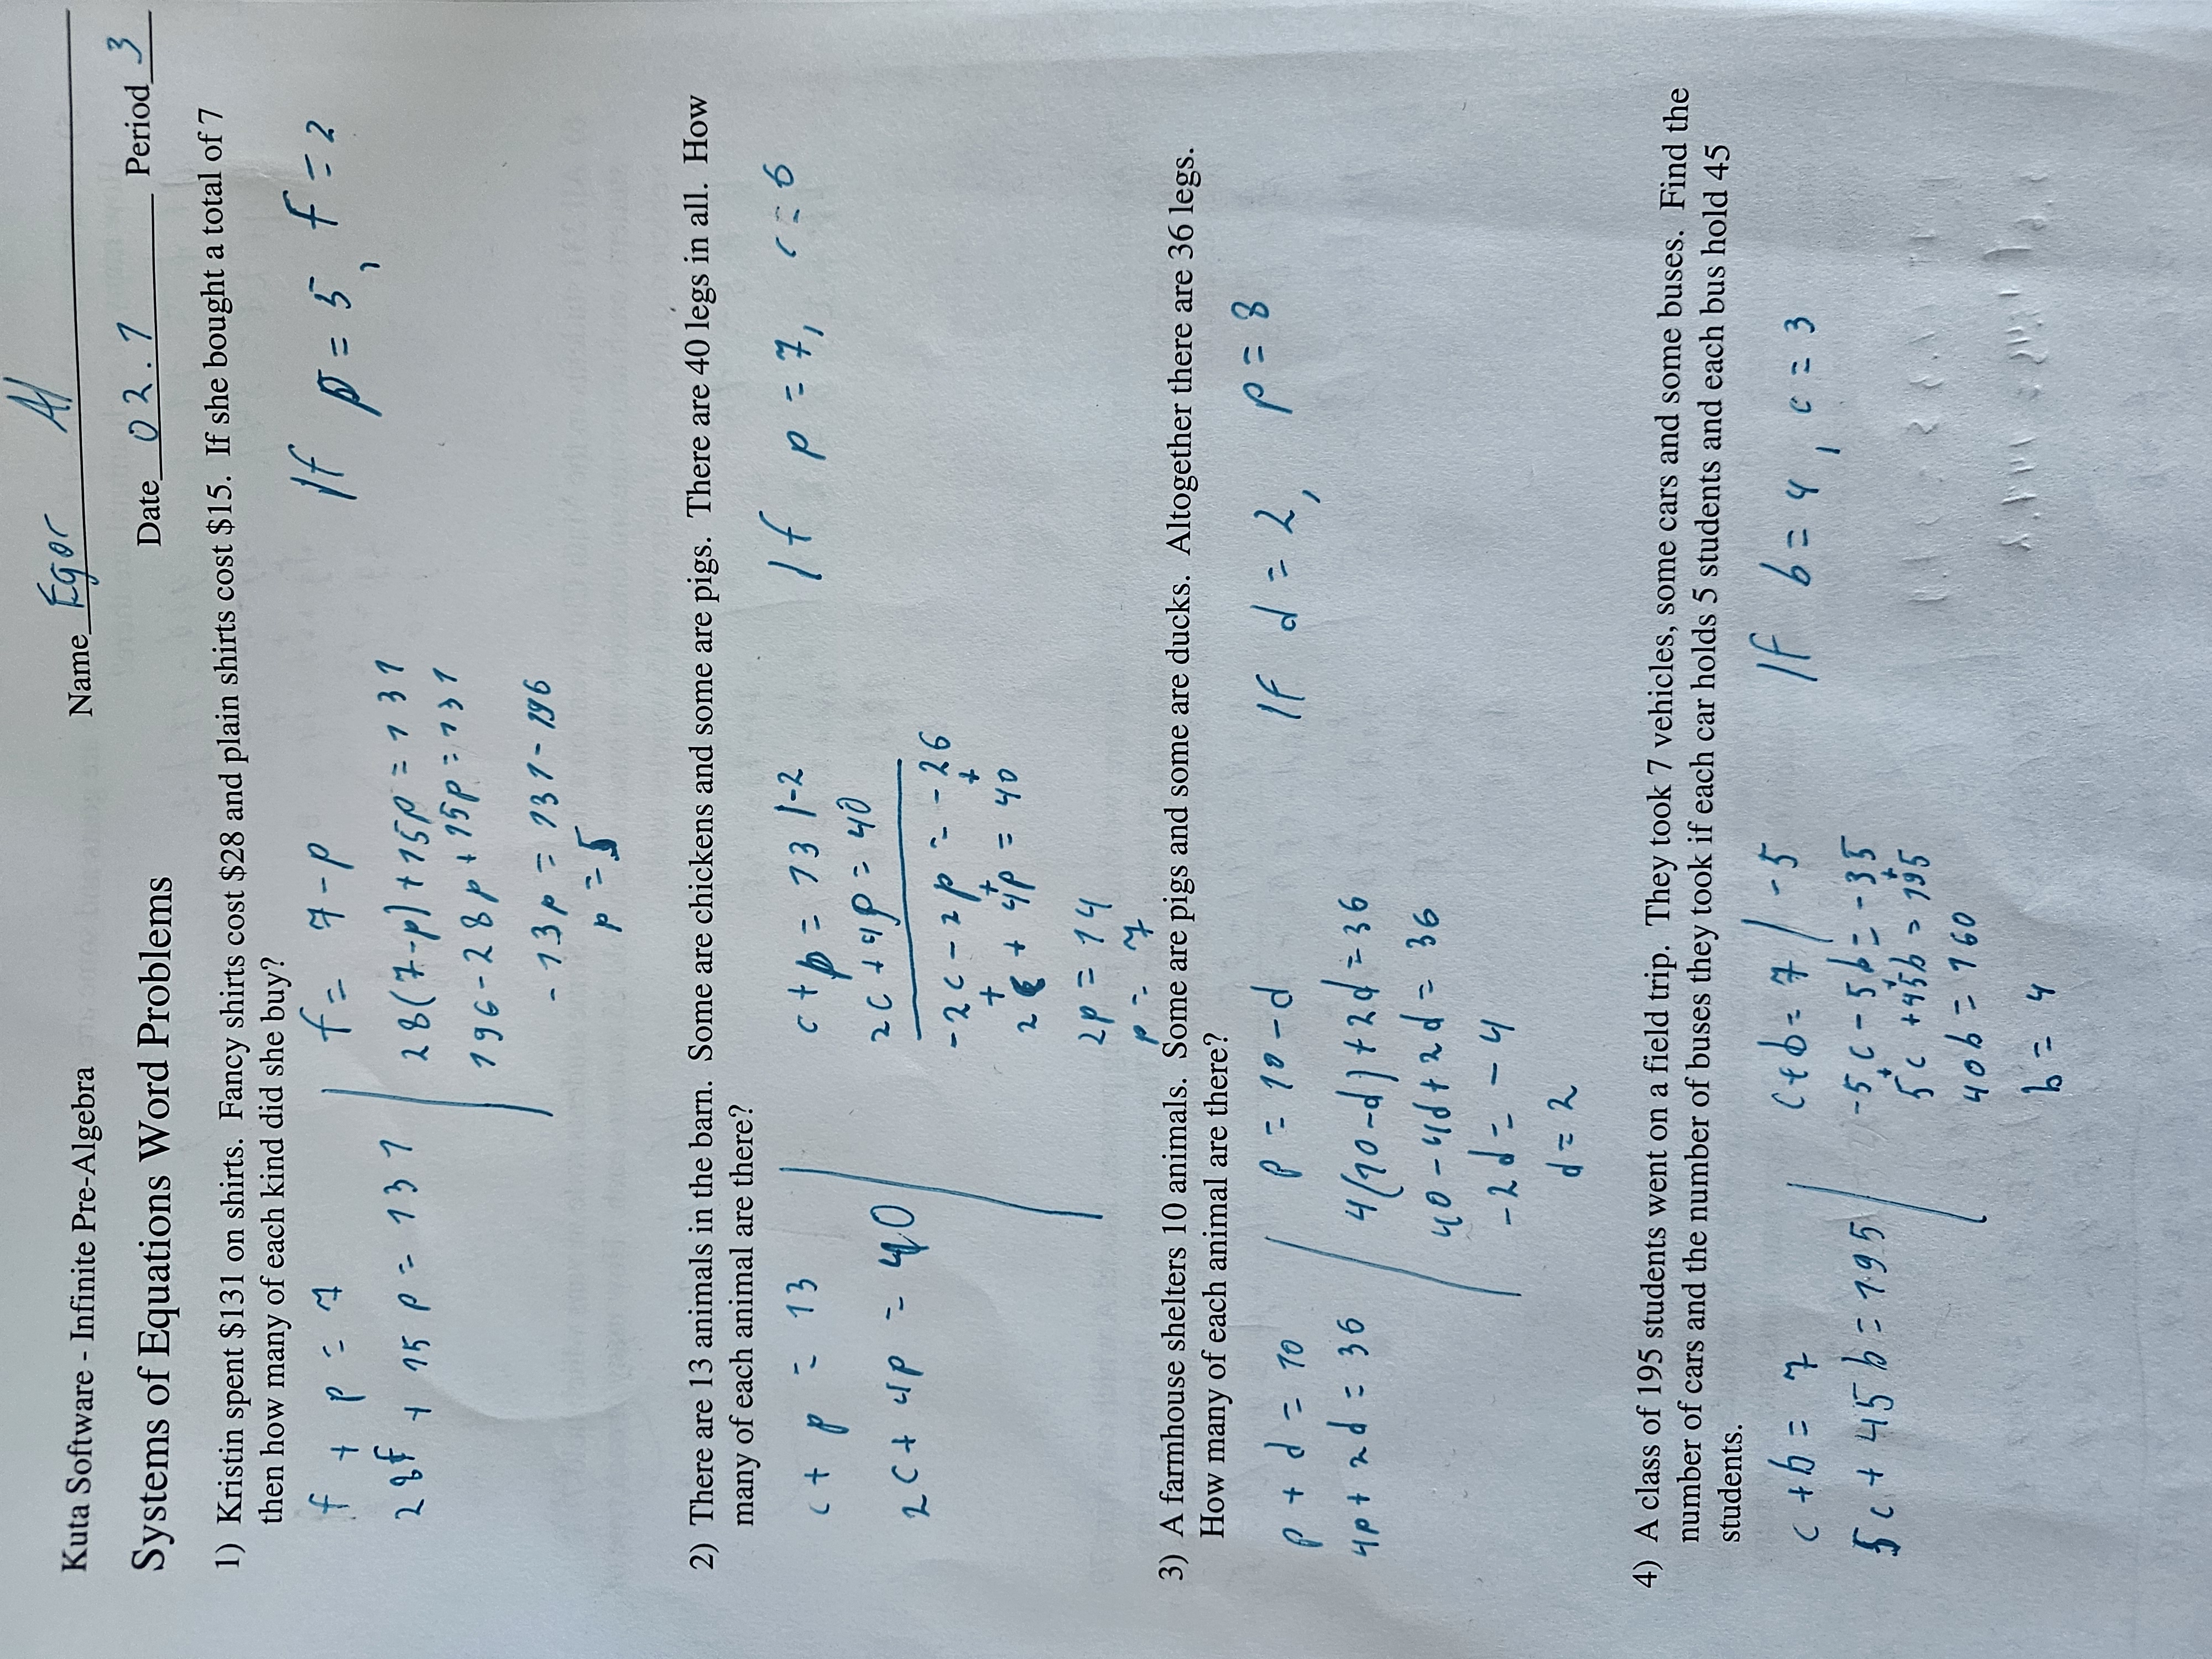 Kuta Software - Infinite Pre-Algebra
Name Egor Al
Systems of Equations Word Problems
Date 02.1 Period 3
1) Kristin spent $131 on shirts. Fancy shirts cost $28 and plain shirts cost $15. If she bought a total of 7
then how many of each kind did she buy?
f + p = 7
28f + 15p = 131
f = 7-p
28(7-p)+15p = 131
196-28p+15p=131
-13p = 131-196
p = 5
If p = 5, f = 2
2) There are 13 animals in the barn. Some are chickens and some are pigs. There are 40 legs in all. How
many of each animal are there?
c + p = 13
2c + 4p = 40
c + p = 13 |-2
2c + 4p = 40
-2c - 2p = -26
+ + +
2c + 4p = 40
2p = 14
p = 7
If p = 7, c = 6
3) A farmhouse shelters 10 animals. Some are pigs and some are ducks. Altogether there are 36 legs.
How many of each animal are there?
p + d = 10
4p + 2d = 36
p = 10-d
4(10-d)+2d=36
40-4d+2d = 36
-2d = -4
d = 2
If d = 2, p = 8
4) A class of 195 students went on a field trip. They took 7 vehicles, some cars and some buses. Find the
number of cars and the number of buses they took if each car holds 5 students and each bus hold 45
students.
c + b = 7
5c + 45b = 195
c+b= 7 | -5
-5c - 5b = -35
+ + +
5c +45b = 195
40b = 160
b = 4
If b = 4, c = 3